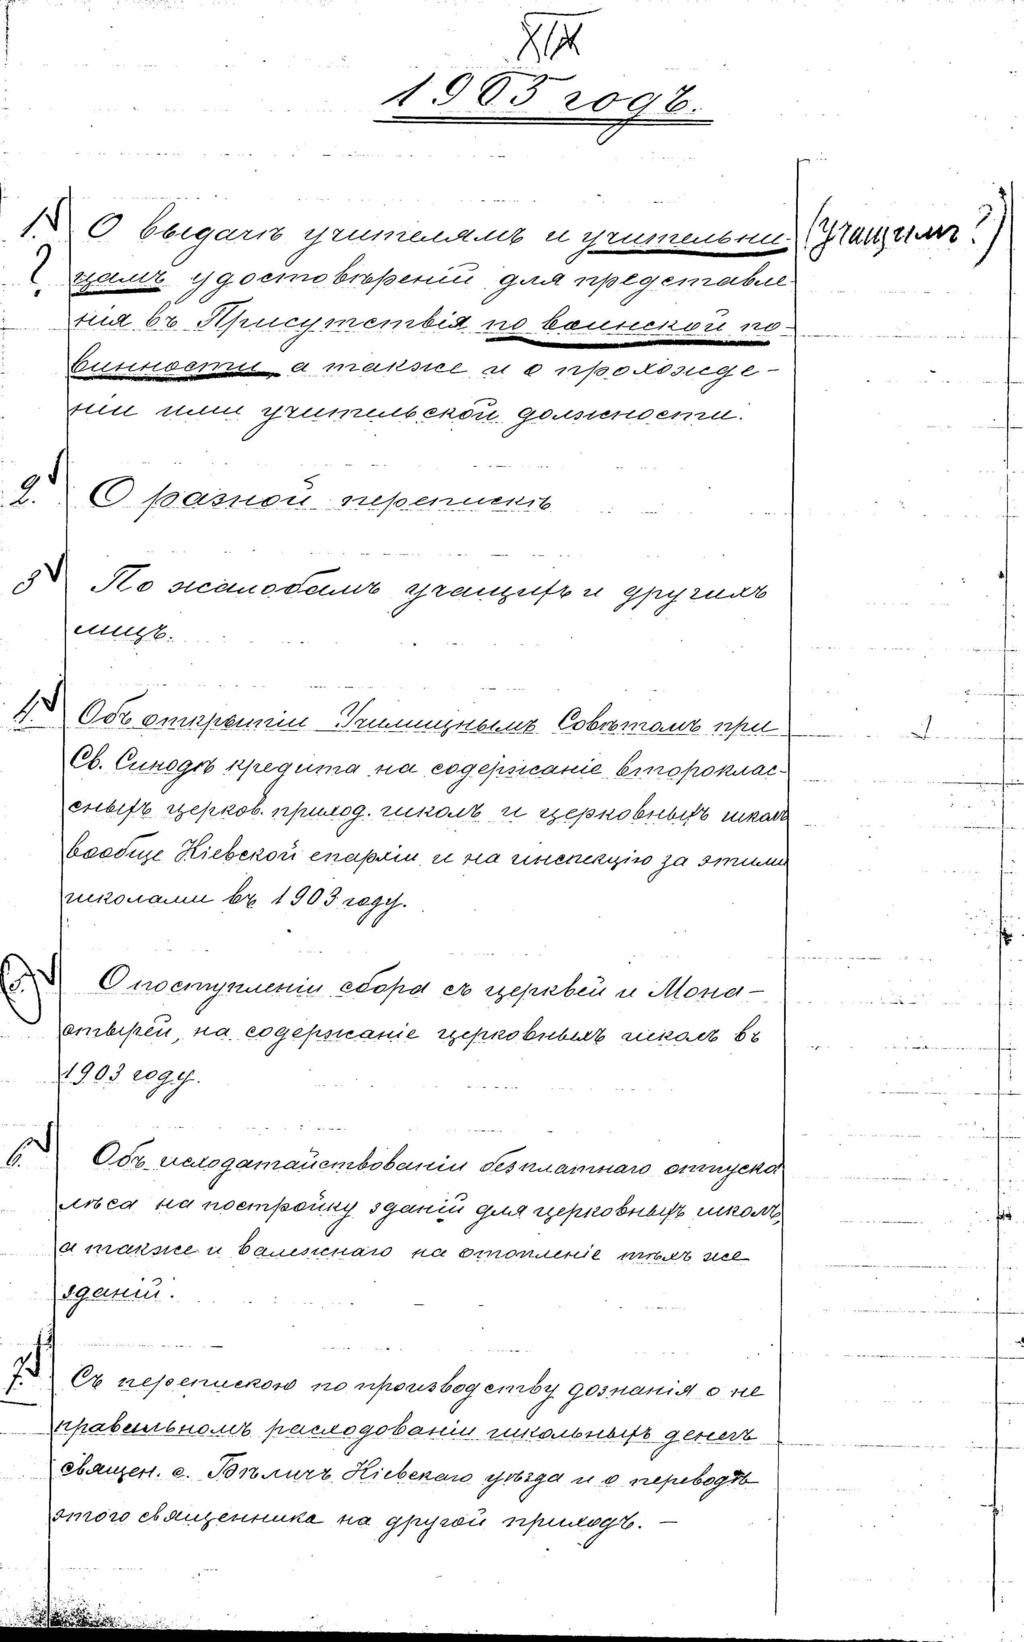 XIX
1903 годъ.
1. О выдачѣ учителямъ и учительни- (учащимъ?)
? цамъ удостовѣреній для представле-
нія въ Присутствія по воинской по-
винности, а также и о прохожде-
ніи ими учительской должности.
2. О разной перепискѣ
3 По жалобамъ учащихъ и другихъ
лицъ.
4. Объ открытіи Училищнымъ Совѣтомъ при
Св. Синодѣ кредита на содержаніе второклас-
сныхъ церков. приход. школъ и церковныхъ школъ
вообще Кіевской епархіи и на инспекцію за этими
школами въ 1903 году.
5. О поступленіи сбора съ церквей и Мона-
стырей, на содержаніе церковныхъ школъ въ
1903 году.
6. Объ исходатайствованіи безплатнаго отпуска
лѣса на постройку зданій для церковныхъ школъ,
а также и валежнаго на отопленіе тѣхъ же
зданій.
7. Съ перепискою по производству дознанія о не
правильномъ расходованіи школьныхъ денегъ
священ. с. Бѣличъ Кіевскаго уѣзда и о переводѣ
этого священника на другой приходъ. —